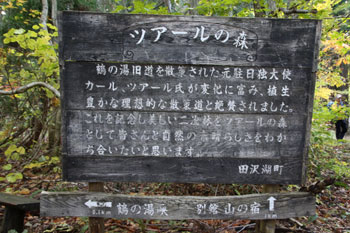 ツアールの森
鶴の湯旧道を散策された元駐日独大使
カール、ツアール氏が変化に富み、植生
豊かな理想的な散策道と絶賛されました。
これを記念し美しい二次林をツアールの森
として皆さんと自然の素晴らしさをわか
ち合いたいと思います。
田沢湖町
鶴の湯 別館 山の宿